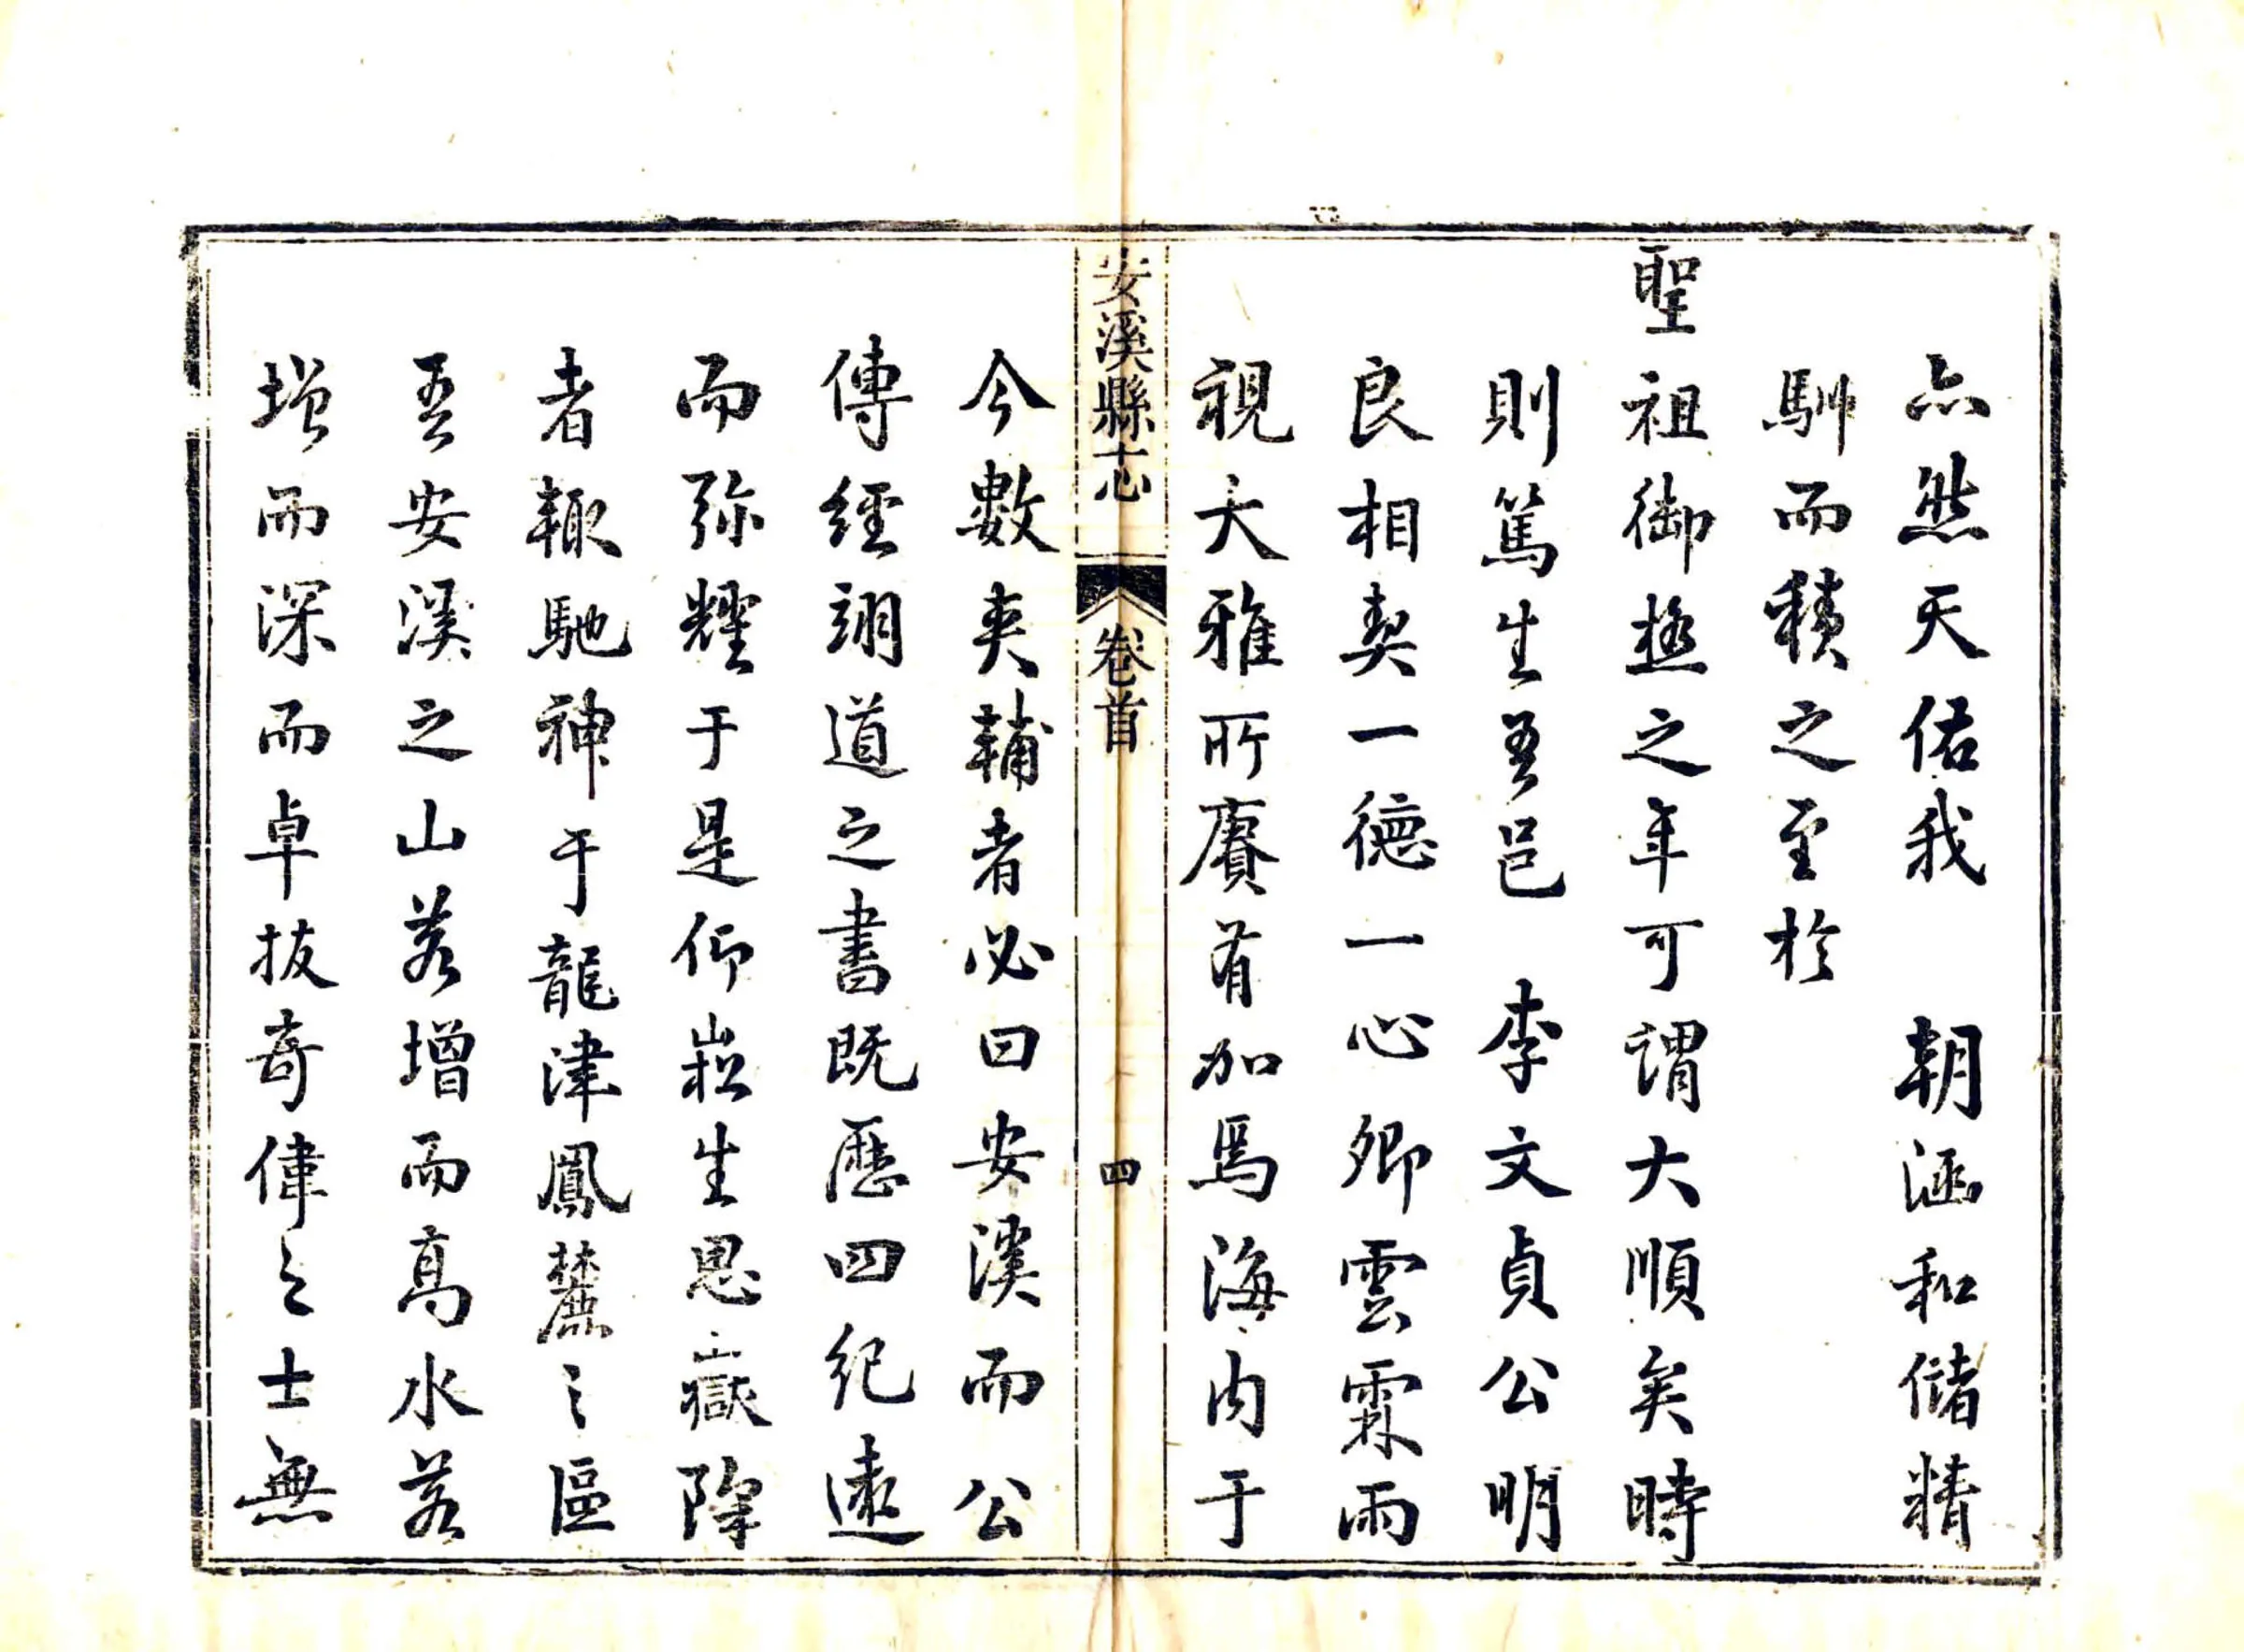 亦然天佑我　朝涵和儲精
馴而積之至於
聖祖御極之年可謂大順矣時
則篤生吾邑　李文貞公明
良相契一德一心卿雲霖雨
視大雅所賡有加焉海內于
安溪縣志　卷首　四
今數夾輔者必曰安溪而公
傳經翊道之書既歷四紀遠
而弥耀于是仰崧生思嶽降
者輙馳神于龍津鳳麓之區
吾安溪之山若增而高水若
增而深而卓拔奇偉之士無